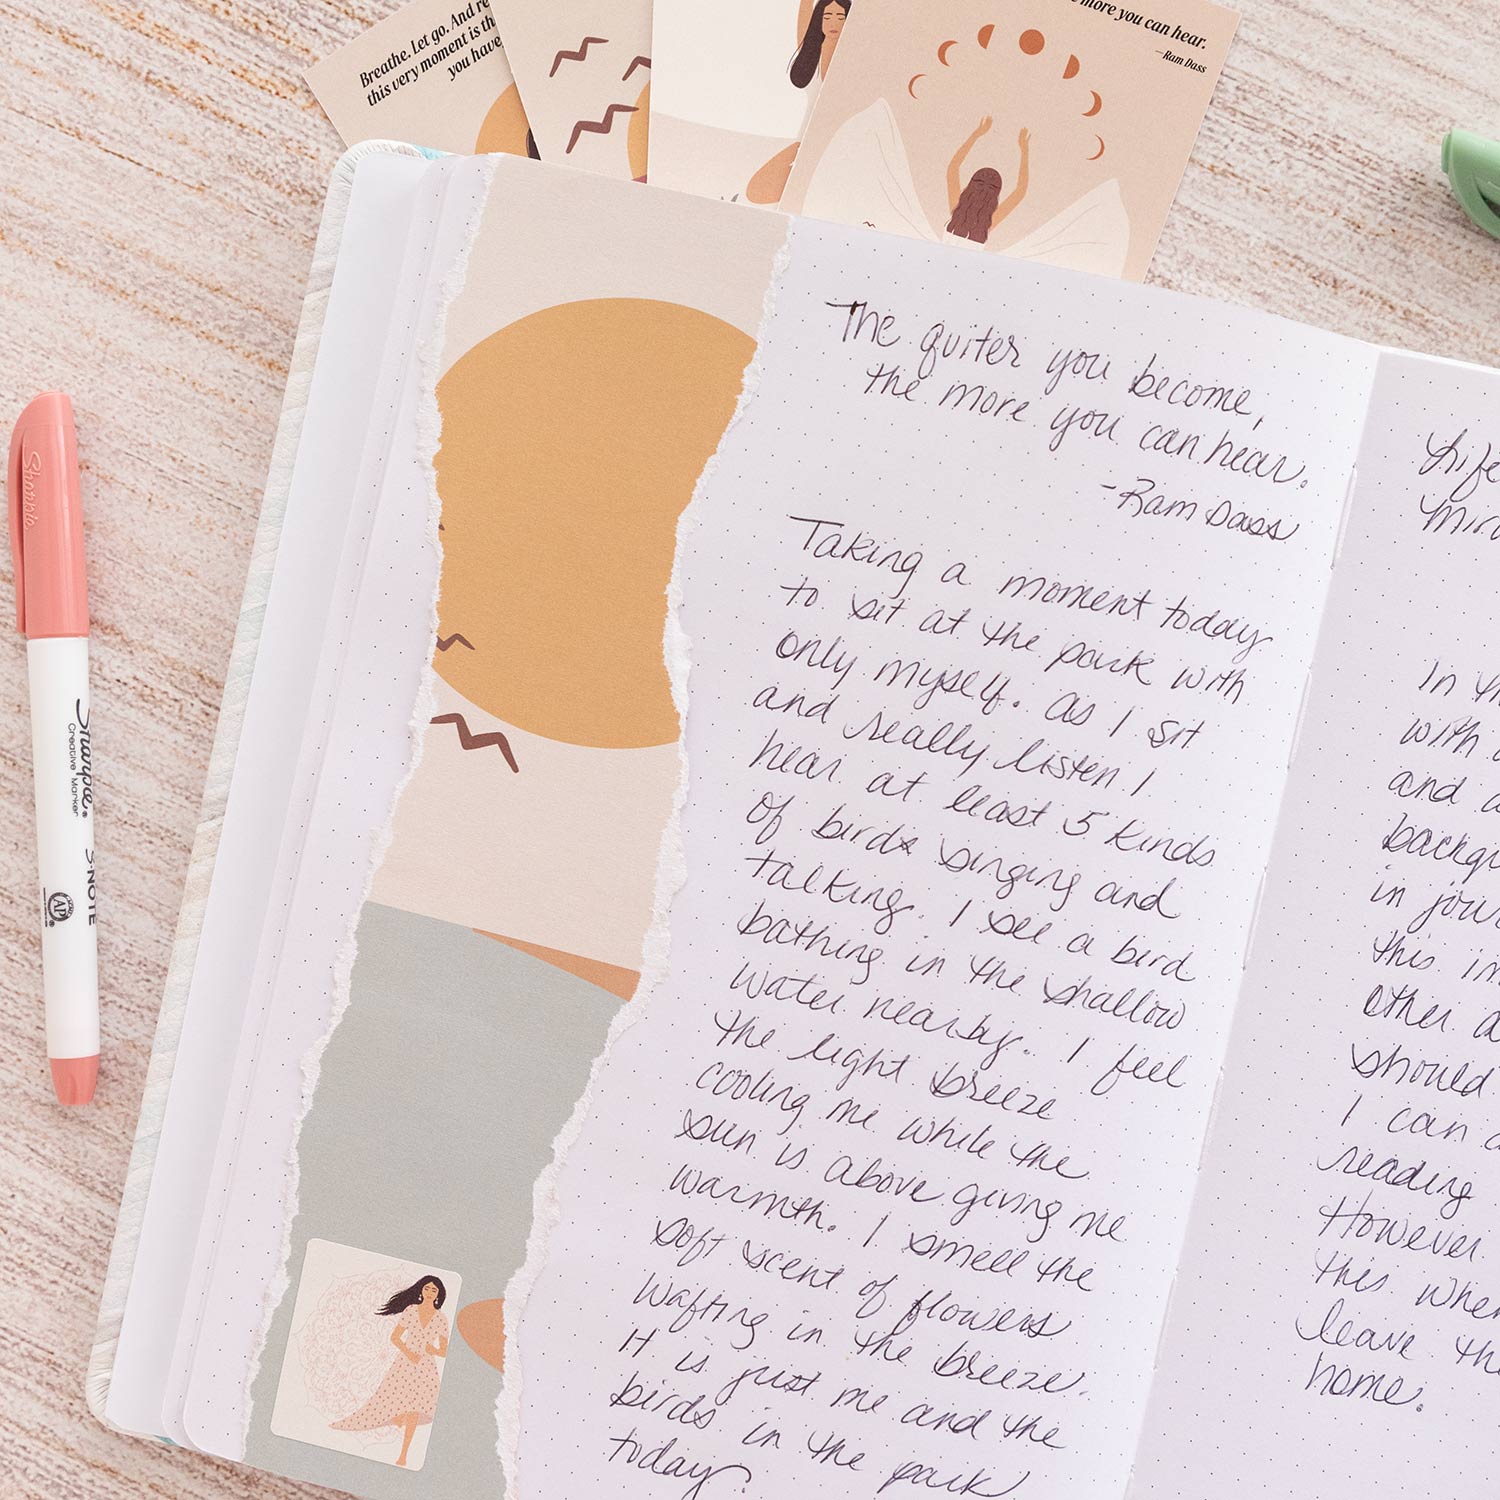 Breathe. Let go. And re
this very moment is th
you have
e more you can hear.
—Ram Dass
The quiter you become,
the more you can hear.
-Ram Dass
Taking a moment today
to sit at the park with
only myself. As I sit
and really listen I
hear at least 5 kinds
of birds singing and
talking. I see a bird
bathing in the shallow
water nearby. I feel
the light breeze
cooling me while the
sun is above giving me
warmth. I smell the
soft scent of flowers
wafting in the breeze.
It is just me and the
birds in the park
today.
Life
Mir
In th
with
and a
backgr
in jour
this in
other a
should
I can a
reading
However
this when
leave th
home.
Sharpie
Sharpie®
Creative Marker
S·NOTE
AP